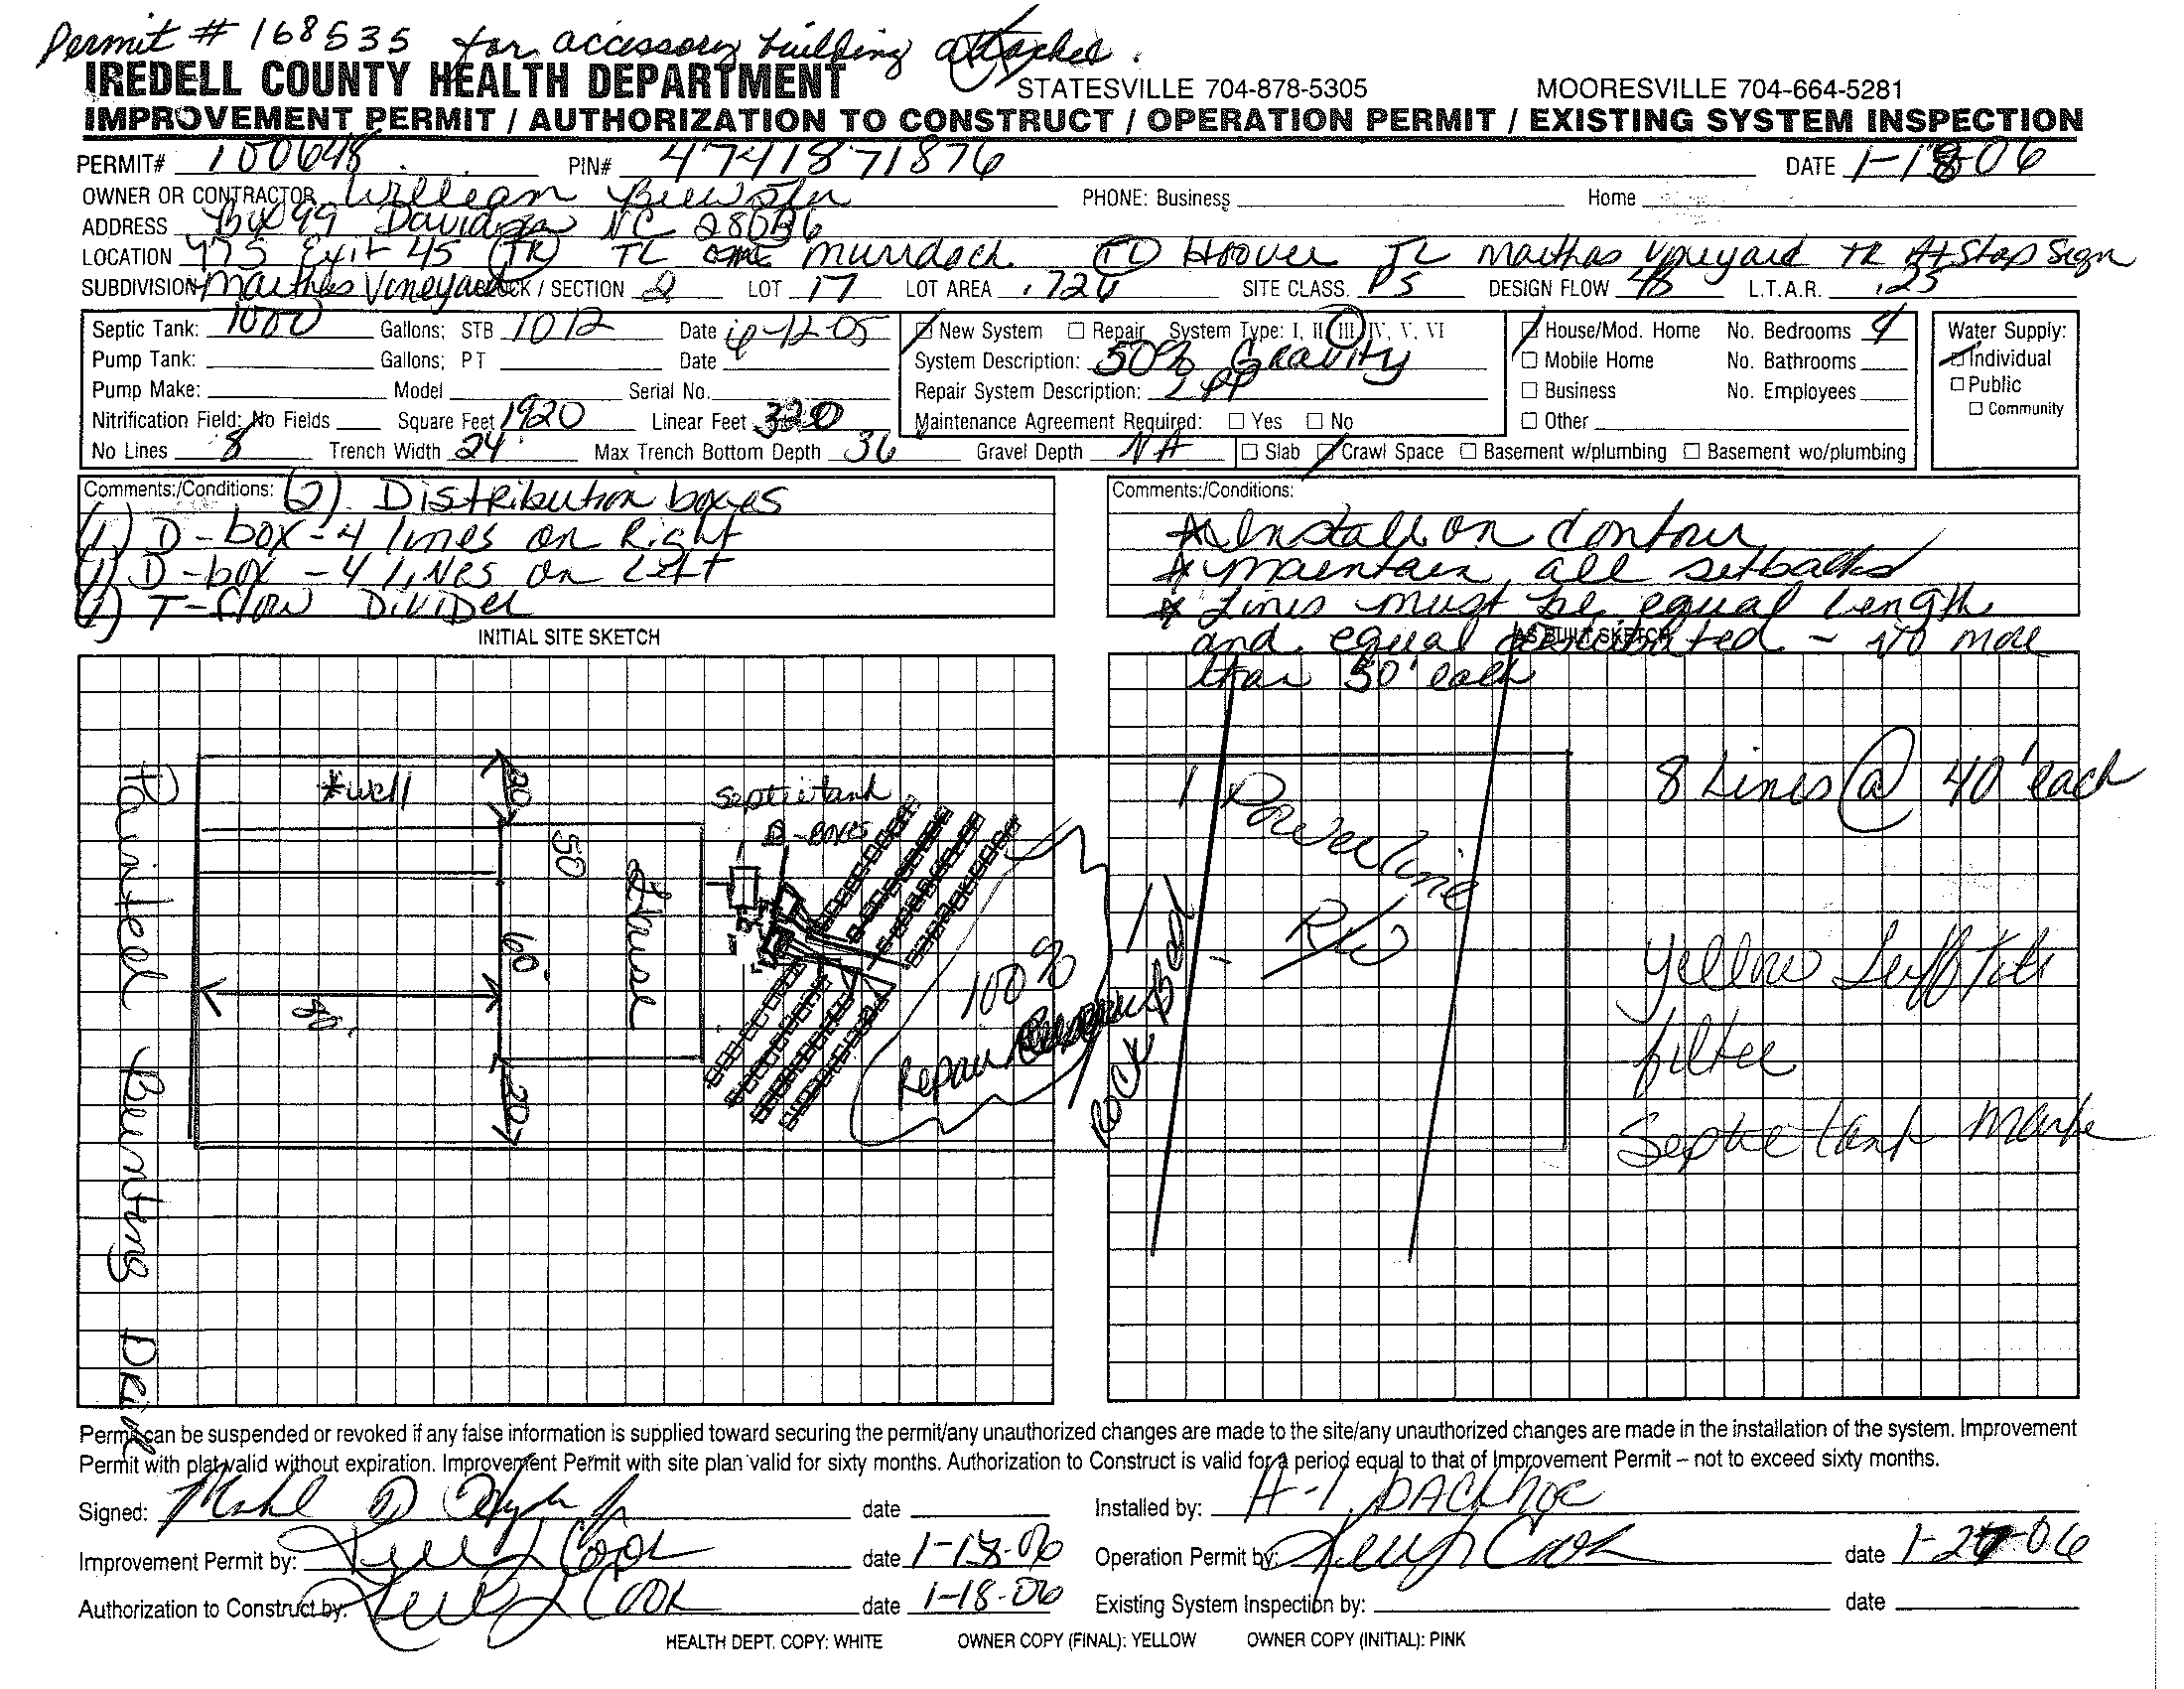 Permit # 168535 for accessory building attached.
IREDELL COUNTY HEALTH DEPARTMENT STATESVILLE 704-878-5305 MOORESVILLE 704-664-5281
IMPROVEMENT PERMIT / AUTHORIZATION TO CONSTRUCT / OPERATION PERMIT / EXISTING SYSTEM INSPECTION
PERMIT# 100648 PIN# 4741871876 DATE 1-18-06
OWNER OR CONTRACTOR William Brewster PHONE: Business Home
ADDRESS Bx 99 Davidson NC 28036
LOCATION 77S Exit 45 TR TL Murdock TL Hoover TL Marthas Vineyard TR At Stop Sign
SUBDIVISION Marthas Vineyard BLOCK / SECTION 2 LOT 17 LOT AREA .726 SITE CLASS. PS DESIGN FLOW 48 L.T.A.R. .25
Septic Tank: 1000 Gallons; STB 1012 Date 10-12-05 New System Repair System Type: I, II, III, IV, V, VI House/Mod. Home No. Bedrooms 4 Water Supply:
Pump Tank: Gallons; PT Date System Description: 50% Gravity Mobile Home No. Bathrooms Individual
Pump Make: Model Serial No. Repair System Description: LPP Business No. Employees Public
Nitrification Field: No Fields Square Feet 1920 Linear Feet 320 Maintenance Agreement Required: Yes No Other Community
No Lines 8 Trench Width 24 Max Trench Bottom Depth 36 Gravel Depth NA Slab Crawl Space Basement w/plumbing Basement wo/plumbing
Comments:/Conditions: (2) Distribution boxes
(1) D-box - 4 lines on Right
(1) D-box - 4 lines on Left
(1) T-flow Divider
Comments:/Conditions:
* Install on contour
* maintain all setbacks
* Lines must be equal length
and equal distributed - No more
than 50' each
INITIAL SITE SKETCH
AS BUILT SKETCH
*well
20
50
60'
80'
20'
House
Septic tank
D-boxes
100%
Repair
Rock Bed
Powerline
R/W
8 Lines @ 40' each
Yellow
filter
Septic tank
Painted Bunting Drive
Permit can be suspended or revoked if any false information is supplied toward securing the permit/any unauthorized changes are made to the site/any unauthorized changes are made in the installation of the system. Improvement
Permit with plat valid without expiration. Improvement Permit with site plan valid for sixty months. Authorization to Construct is valid for a period equal to that of Improvement Permit – not to exceed sixty months.
Signed: date Installed by: A-1 Backhoe
Improvement Permit by: Cook date 1-18-06 Operation Permit by: Cook date 1-27-06
Authorization to Construct by: Cook date 1-18-06 Existing System Inspection by: date
HEALTH DEPT. COPY: WHITE OWNER COPY (FINAL): YELLOW OWNER COPY (INITIAL): PINK